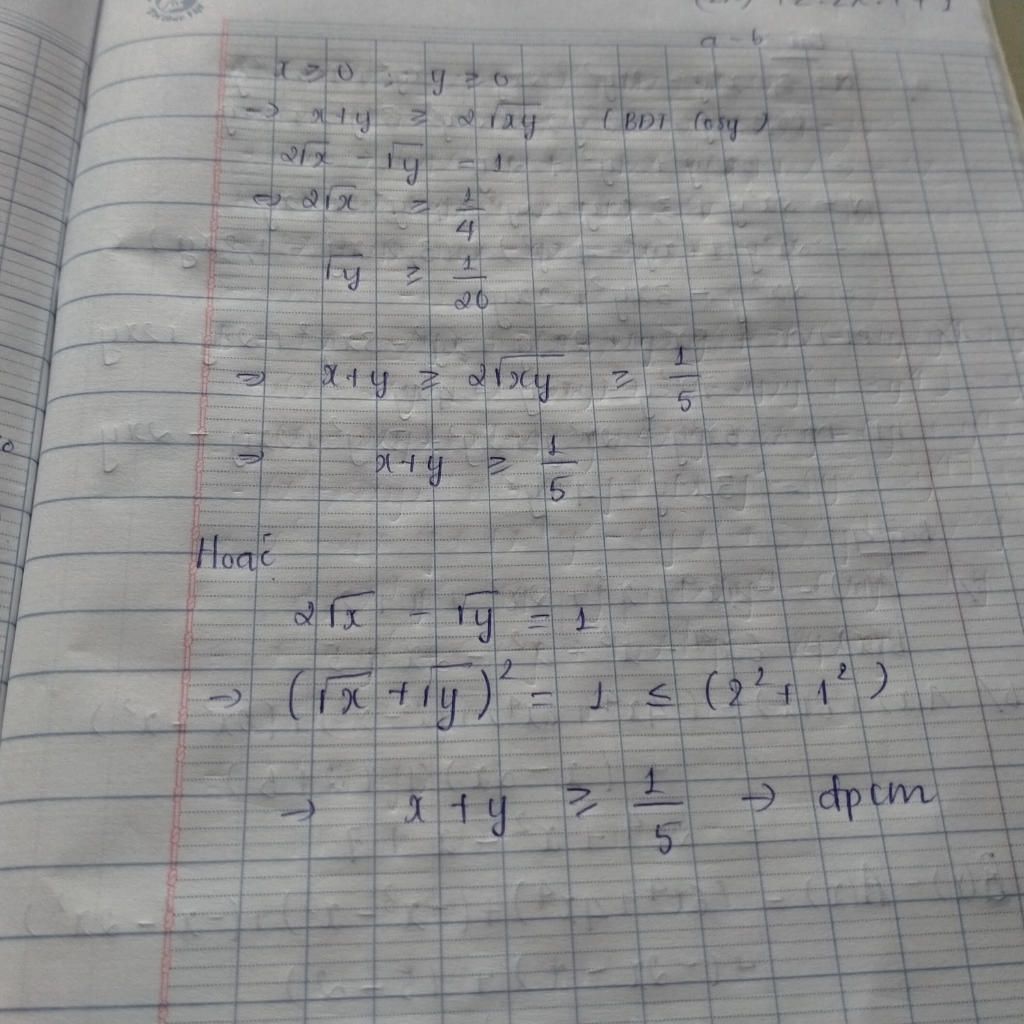 a - b
x ≥ 0 ; y ≥ 0
→ x+y ≥ 2√xy (BĐT Cosy)
2√x - √y = 1
⇒ 2√x ≥ 1/4
√y ≥ 1/20
⇒ x+y ≥ 2√xy ≥ 1/5
⇒ x+y ≥ 1/5
Hoặc
2√x - √y = 1
→ (√x + √y)² = 1 ≤ (2² + 1²)
→ x + y ≥ 1/5 → đpcm